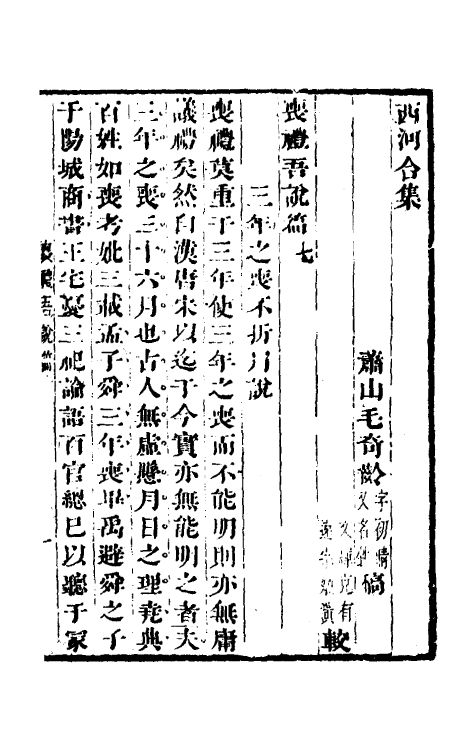 西河合集
蕭山毛奇齡 字初晴 又名甡 稿
文輝充有 較
喪禮吾說篇七
三年之喪不折月說
喪禮莫重于三年使三年之喪而不能明則亦無庸
議禮矣然自漢唐宋以迄于今實亦無能明之者夫
三年之喪三十六月也古人無虛懸月日之理堯典
百姓如喪考妣三載孟子舜三年喪畢禹避舜之子
于陽城商書王宅憂三祀論語百官總己以聽于冢
喪禮吾說篇